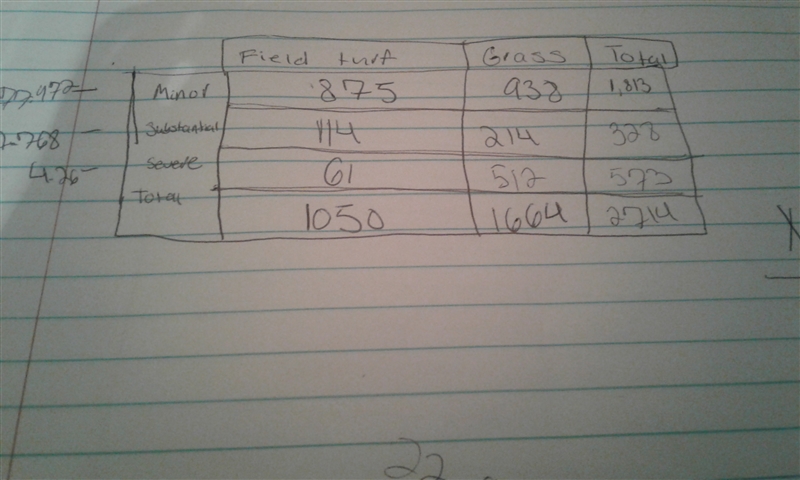 Field turf Grass Total
Minor 875 938 1,813
Substantial 114 214 328
Severe 61 512 573
Total 1050 1664 2714
22